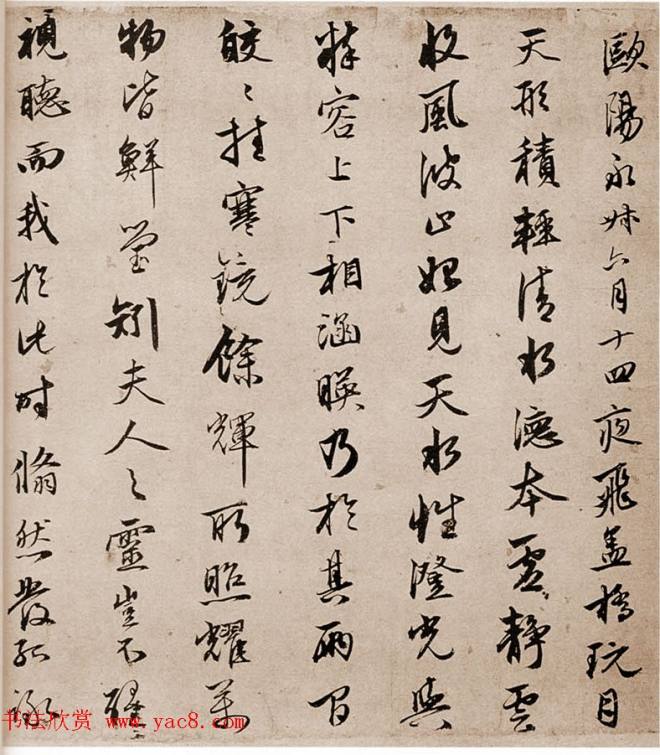 歐陽永叔六月十四夜飛蓋橋玩月
天形積輕清水德本虛靜雲
收風波止始見天水性澄光與
粹容上下相涵暎乃於其兩間
皎〻挂寒鏡餘輝所照耀萬
物皆鮮瑩矧夫人之靈豈不醒
視聽而我於此時翛然發孤詠
书法欣赏 www.yac8.com